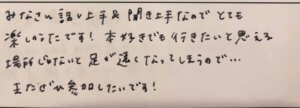 みなさん話し上手&聞き上手なので とても
楽しかったです! 本好きでも行きたいと思える
場所じゃないと足が遠くなってしまうので…
またぜひ参加したいです!